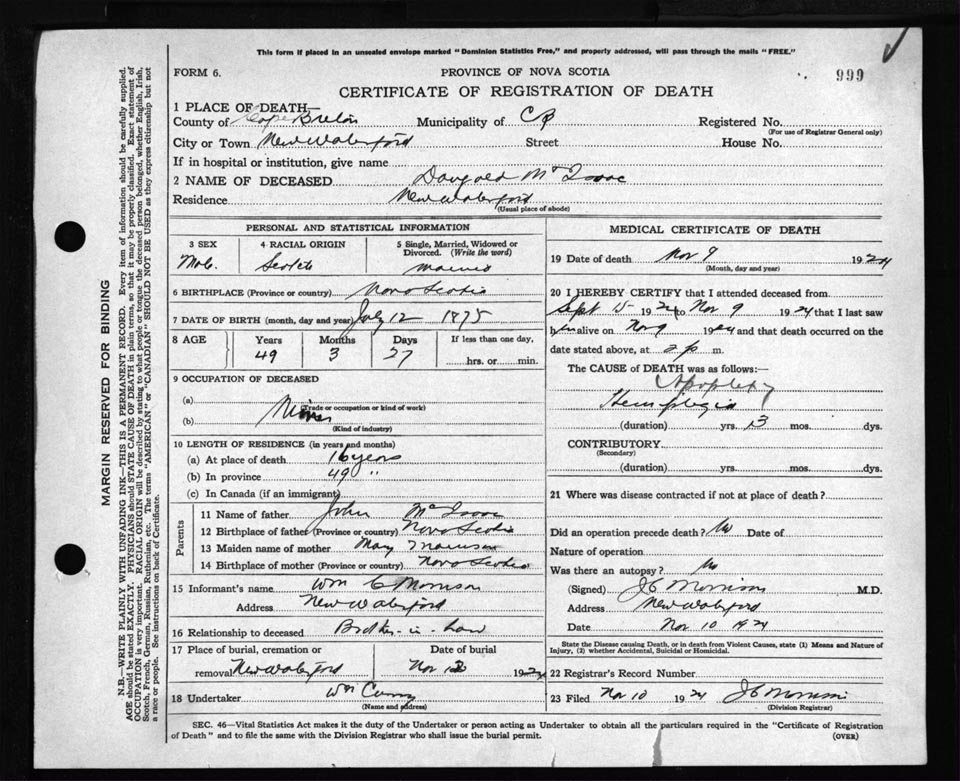 This form if placed in an unsealed envelope marked "Dominion Statistics Free," and properly addressed, will pass through the mails "FREE."
FORM 6.
PROVINCE OF NOVA SCOTIA
999
CERTIFICATE OF REGISTRATION OF DEATH
1 PLACE OF DEATH—
County of Cape Breton Municipality of CB Registered No.
(For use of Registrar General only)
City or Town New Waterford Street House No.
If in hospital or institution, give name
2 NAME OF DECEASED Dougald McIsaac
Residence New Waterford
(Usual place of abode)
PERSONAL AND STATISTICAL INFORMATION
3 SEX 4 RACIAL ORIGIN 5 Single, Married, Widowed or Divorced. (Write the word)
Male Scotch married
6 BIRTHPLACE (Province or country) Nova Scotia
7 DATE OF BIRTH (month, day and year) July 12 1875
8 AGE Years Months Days If less than one day,
49 3 27 hrs. or min.
9 OCCUPATION OF DECEASED
(a)
(Trade or occupation or kind of work)
(b) Miner
(Kind of industry)
10 LENGTH OF RESIDENCE (in years and months)
(a) At place of death 16 years
(b) In province 49 "
(c) In Canada (if an immigrant)
Parents
11 Name of father John McIsaac
12 Birthplace of father (Province or country) Nova Scotia
13 Maiden name of mother Mary Morrison
14 Birthplace of mother (Province or country) Nova Scotia
15 Informant's name Wm C Morrison
Address New Waterford
16 Relationship to deceased Brother-in-Law
17 Place of burial, cremation or Date of burial
removal New Waterford Nov 1924
18 Undertaker Wm Curry
(Name and address)
MEDICAL CERTIFICATE OF DEATH
19 Date of death Nov 9 1924
(Month, day and year)
20 I HEREBY CERTIFY that I attended deceased from
Sept 15 1924 to Nov 9 1924 that I last saw
him alive on Nov 9 1924 and that death occurred on
date stated above, at 2 p m.
The CAUSE of DEATH was as follows:—
Apoplexy
Hemiplegia
(duration) yrs. 3 mos. dys.
CONTRIBUTORY
(Secondary)
(duration) yrs. mos. dys.
21 Where was disease contracted if not at place of death?
Did an operation precede death? No Date of
Nature of operation
Was there an autopsy? No
(Signed) J C Morrison M.D.
Address New Waterford
Date Nov 10 1924
State the Disease causing Death, or in death from Violent Causes, state (1) Means and Nature of
Injury, (2) whether Accidental, Suicidal or Homicidal.
22 Registrar's Record Number
23 Filed Nov 10 1924 J C Morrison
(Division Registrar)
SEC. 46—Vital Statistics Act makes it the duty of the Undertaker or person acting as Undertaker to obtain all the particulars required in the "Certificate of Registration
of Death" and to file the same with the Division Registrar who shall issue the burial permit.
(OVER)
MARGIN RESERVED FOR BINDING
N.B.—WRITE PLAINLY WITH UNFADING INK—THIS IS A PERMANENT RECORD. Every item of information should be carefully supplied.
AGE should be stated EXACTLY. PHYSICIANS should STATE CAUSE OF DEATH in plain terms, so that it may be properly classified. Exact statement of
OCCUPATION is very important. RACIAL ORIGIN will be described by stating to what people or tongue the deceased person belonged, whether English, Irish,
Scotch, French, German, Russian, Ruthenian, etc. The terms "AMERICAN" or "CANADIAN" SHOULD NOT BE USED as they express citizenship but not
a race or people. See instructions on back of Certificate.